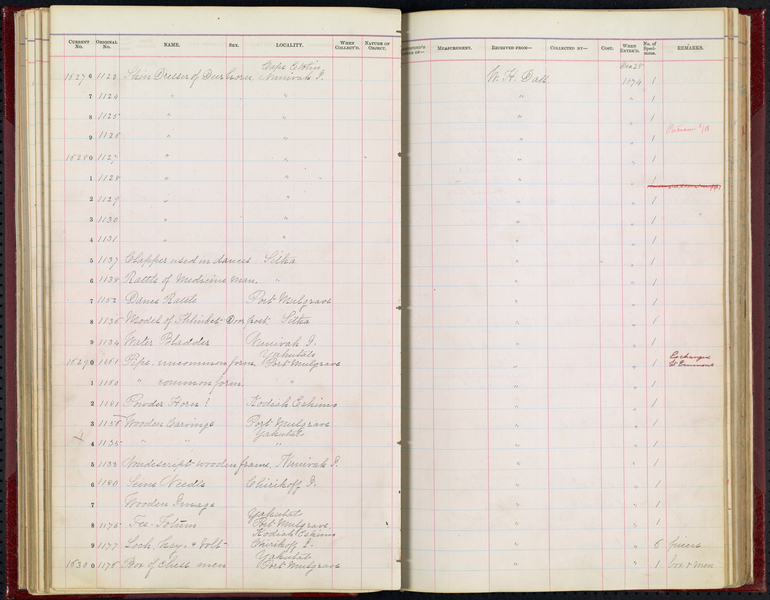 CURRENT No. ORIGINAL No. NAME. SEX. LOCALITY. WHEN COLLECT'D. NATURE OF OBJECT. MEASUREMENT. RECEIVED FROM— COLLECTED BY— COST. WHEN ENTER'D. No. of Speci- mens. REMARKS.
Cape Etolin Dec 28
1627 6 1123 Skin Dresser of Deer horn Nunivak I. W. H. Dall 1874 1
7 1124 " " " " 1
8 1125 " " " " 1
9 1126 " " " " 1
1628 0 1127 " " " " 1
1 1128 " " " " 1
2 1129 " " " " 1
3 1130 " " " " 1
4 1131 " " " " 1
5 1137 Clapper used in dances Sitka " " 1
6 1138 Rattle of Medicine man. " " " 1
7 1152 Dance Rattle Port Mulgrave " " 1
8 1136 Model of Thlinket Door post Sitka " " 1
9 1134 Water Bladder Nunivak I. " " 1
Yakutat
1629 0 1161 Pipe. uncommon form Port Mulgrave " " 1 Exchanged
1 1160 " common form. " " " 1
2 1181 Powder Horn? Kodiak Eskimo " " 1
3 1158 Wooden Carvings Port Mulgrave " " 1
Yakutat
4 1135 " " " " " 1
5 1133 Nondescript wooden frame. Nunivak I. " " 1
6 1180 Seine Needle Chirikoff I. " " 1
7 Wooden Image " " 1
Yakutat
8 1176 Tee-Totum Port Mulgrave " " 1
Kodiak Eskimo
9 1177 Lock, key, & bolt Chirikoff I. " " 6 pieces
Yakutat
1630 0 1178 Box of chess men Port Mulgrave " " 1 box & men